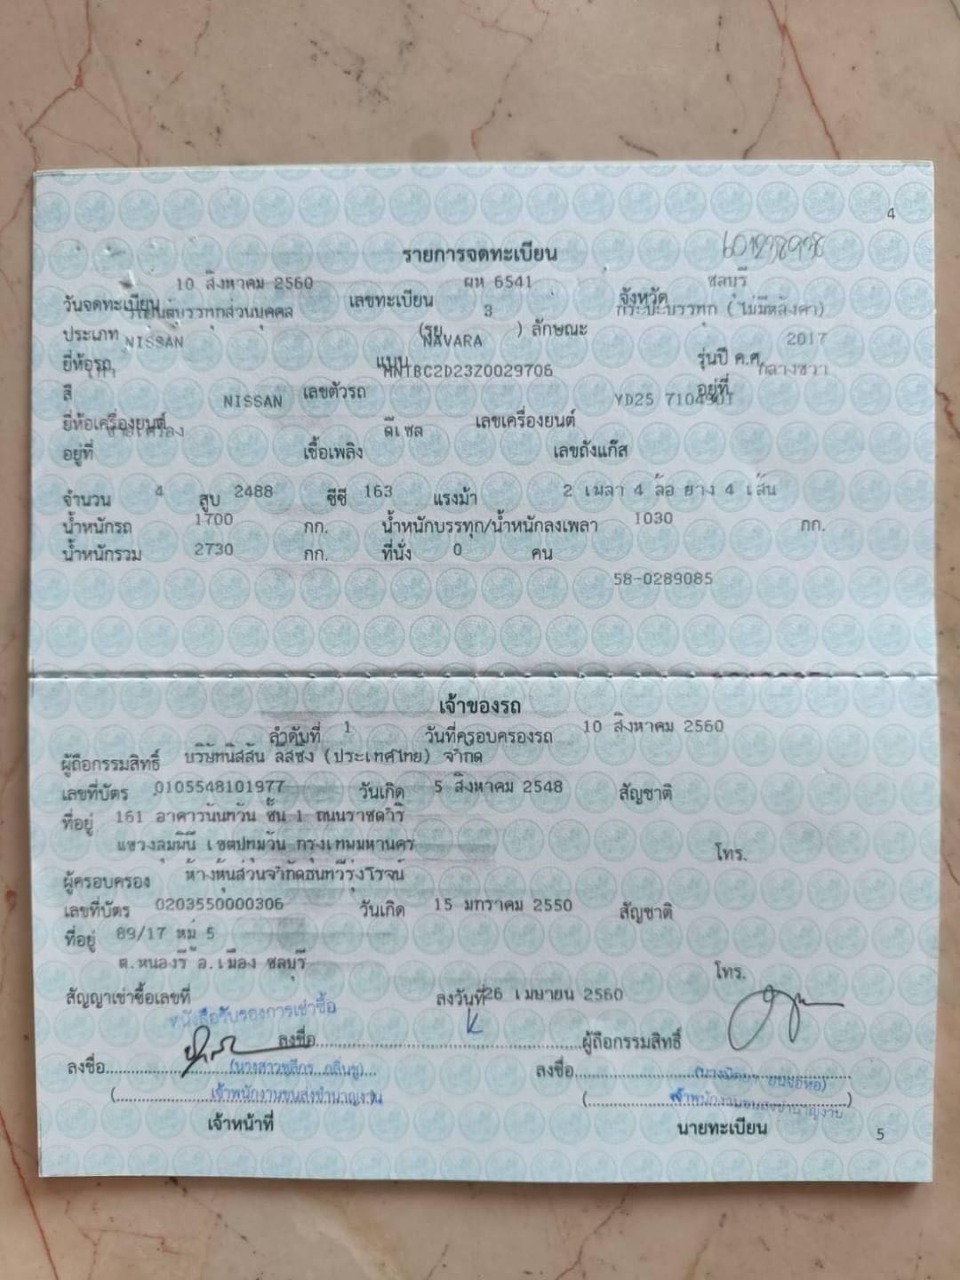 4
รายการจดทะเบียน
วันจดทะเบียน 10 สิงหาคม 2560 เลขทะเบียน ผห 6541 จังหวัด ชลบุรี
ประเภท รถยนต์บรรทุกส่วนบุคคล (รย. 3 ) ลักษณะ กระบะบรรทุก (ไม่มีหลังคา)
ยี่ห้อรถ NISSAN แบบ NAVARA รุ่นปี ค.ศ. 2017
สี เลขตัวรถ MNTBC2D23Z0029706 อยู่ที่ กลางขวา
ยี่ห้อเครื่องยนต์ NISSAN เลขเครื่องยนต์ YD25
อยู่ที่ เชื้อเพลิง ดีเซล เลขถังแก๊ส
จำนวน 4 สูบ 2488 ซีซี 163 แรงม้า 2 เพลา 4 ล้อ ยาง 4 เส้น
น้ำหนักรถ 1700 กก. น้ำหนักบรรทุก/น้ำหนักลงเพลา 1030 กก.
น้ำหนักรวม 2730 กก. ที่นั่ง 0 คน
58-0289085
เจ้าของรถ
ลำดับที่ 1 วันที่ครอบครองรถ 10 สิงหาคม 2560
ผู้ถือกรรมสิทธิ์ บริษัทนิสสัน ลีสซิ่ง (ประเทศไทย) จำกัด
เลขที่บัตร 0105548101977 วันเกิด 5 สิงหาคม 2548 สัญชาติ
ที่อยู่ 161 อาคารนันทวัน ชั้น 1 ถนนราชดำริ
แขวงลุมพินี เขตปทุมวัน กรุงเทพมหานคร โทร.
ผู้ครอบครอง ห้างหุ้นส่วนจำกัดธนทวีรุ่งโรจน์
เลขที่บัตร 0203550000306 วันเกิด 15 มกราคม 2550 สัญชาติ
ที่อยู่ 89/17 หมู่ 5
ต.หนองรี อ.เมือง ชลบุรี โทร.
สัญญาเช่าซื้อเลขที่ ลงวันที่ 26 เมษายน 2560
หนังสือรับรองการเช่าซื้อ
ลงชื่อ ผู้ถือกรรมสิทธิ์
ลงชื่อ ลงชื่อ
เจ้าพนักงานขนส่งชำนาญงาน เจ้าพนักงานขนส่งชำนาญงาน
เจ้าหน้าที่ นายทะเบียน
5